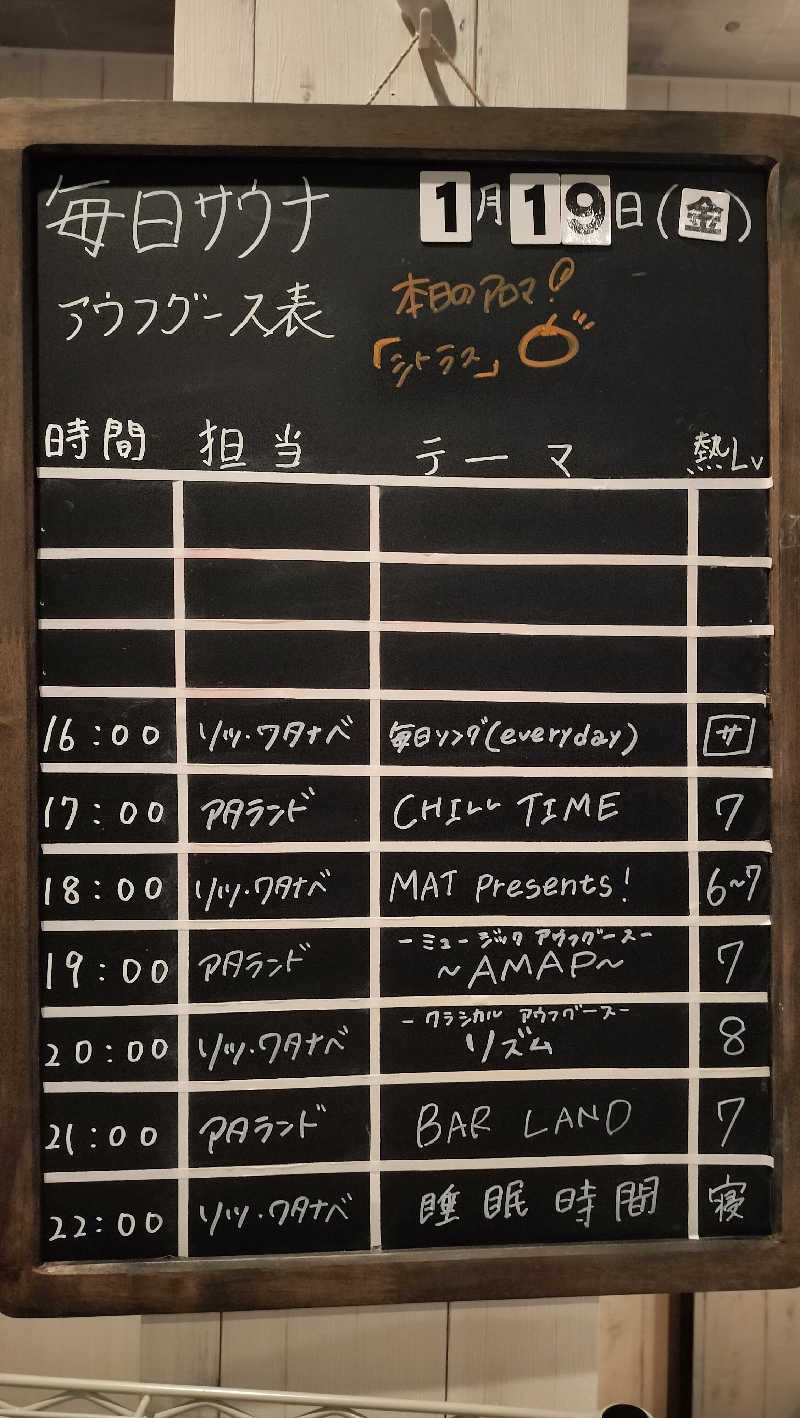 毎日サウナ 1月19日(金)
アウフグース表 本日のアロマ!
「シトラス」
時間 担当 テーマ 熱Lv
16:00 リッツ・ワタナベ 毎日ソング(everyday) サ
17:00 アタランド CHILL TIME 7
18:00 リッツ・ワタナベ MAT Presents! 6~7
-ミュージック アウフグース-
19:00 アタランド ~AMAP~ 7
-クラシカル アウフグース-
20:00 リッツ・ワタナベ リズム 8
21:00 アタランド BAR LAND 7
22:00 リッツ・ワタナベ 睡眠時間 寝